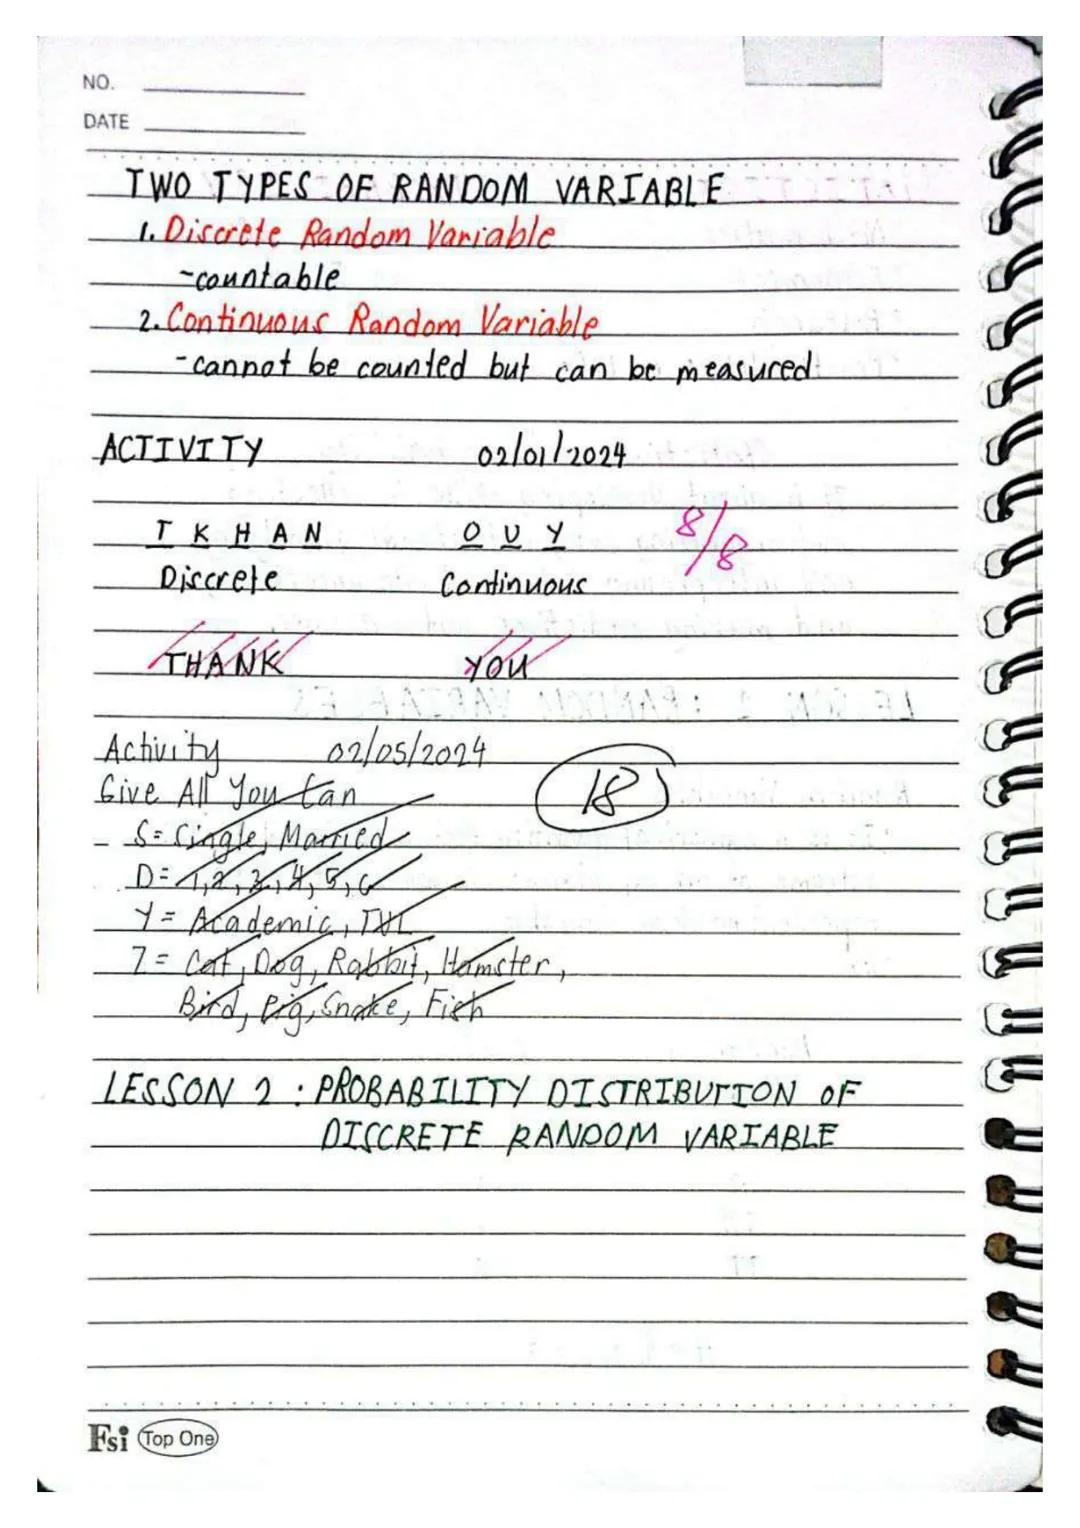 NO.
DATE
TWO TYPES OF RANDOM VARIABLE
1. Discrete Random Variable
-countable
2. Continuous Random Variable
-cannot be counted but can be measured
ACTIVITY 02/01/2024
T K H A N O U Y 8/8
Discrete Continuous
THANK YOU
Activity 02/05/2024
Give All You Can 18
S= Single, Married
D= 1, 2, 3, 4, 5, 6
Y= Academic, TVL
Z= Cat, Dog, Rabbit, Hamster,
Bird, Pig, Snake, Fish
LESSON 2 : PROBABILITY DISTRIBUTION OF
DISCRETE RANDOM VARIABLE
Fsi Top One